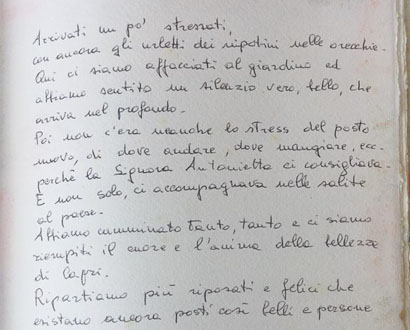 Arrivati un po' stressati,
con ancora gli urletti dei nipotini nelle orecchie.
Qui ci siamo affacciati al giardino ed
abbiamo sentito un silenzio vero, bello, che
arriva nel profondo.
Poi non c'era neanche lo stress del posto
nuovo, di dove andare, dove mangiare, ecc-
perchè la Signora Antonietta ci consigliava.
E non solo, ci accompagnava nelle salite
al paese.
Abbiamo camminato tanto, tanto e ci siamo
riempiti il cuore e l'anima della bellezza
di Lapri.
Ripartiamo più riposati e felici che
esistano ancora posti così belli e persone